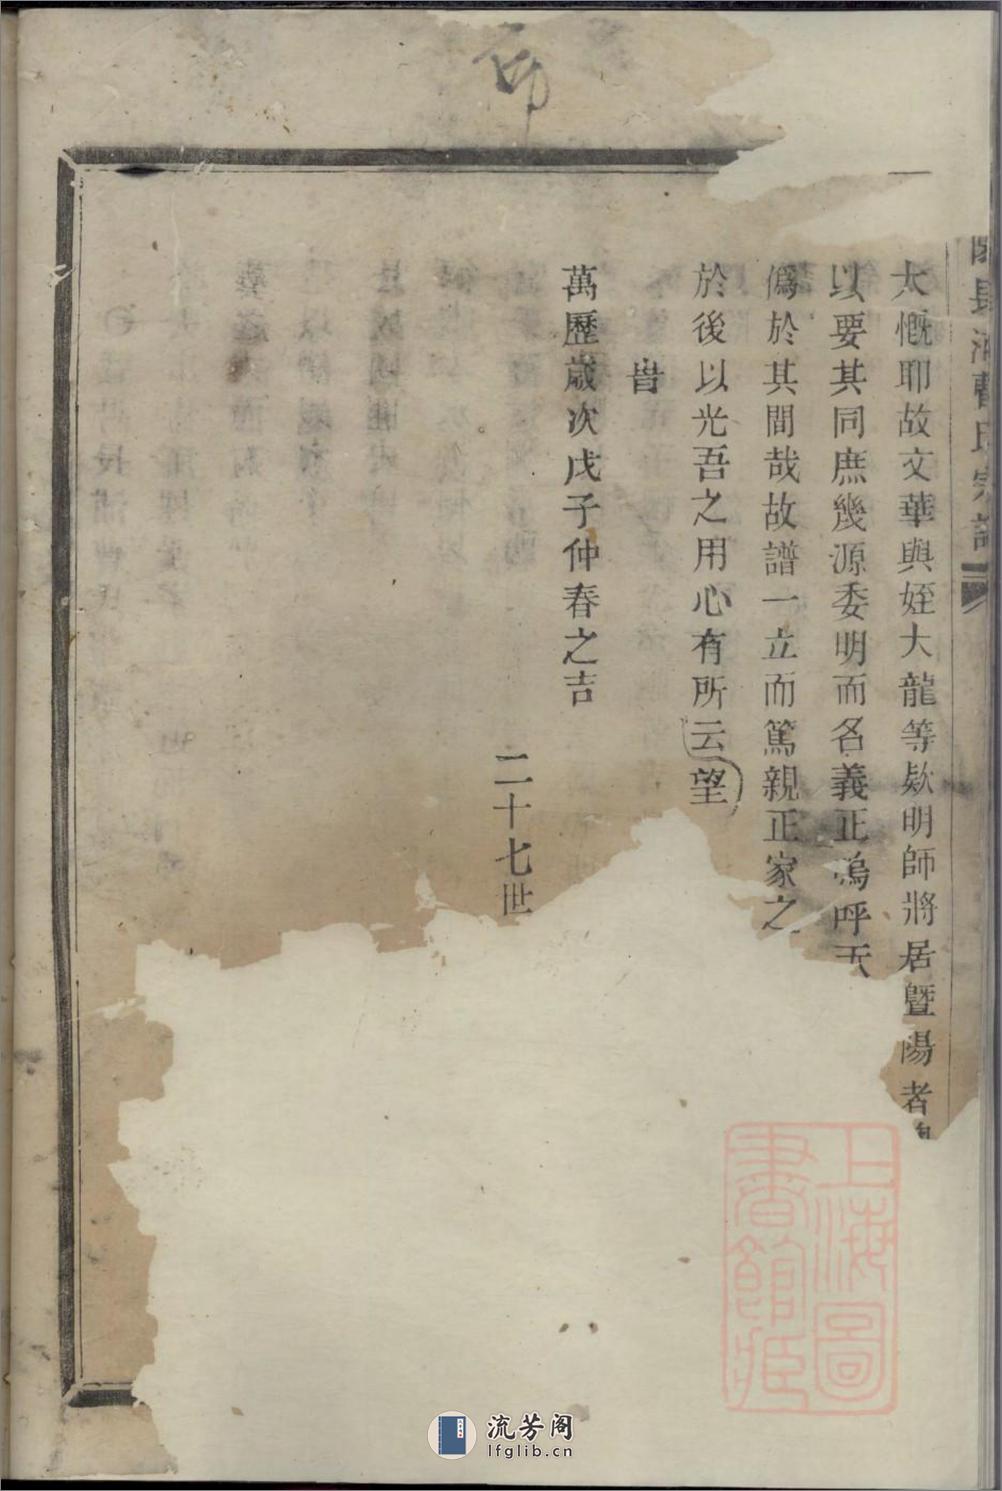 長浦曹氏宗譜
太慨耶故文華與姪大龍等欵明師將居暨陽者
以要其同庶幾源委明而名義正嗚呼天
僞於其間哉故譜一立而篤親正家之
於後以光吾之用心有所云望
旹
萬歷歲次戊子仲春之吉
二十七世
上海圖
書館藏
流芳阁
lfglib.cn